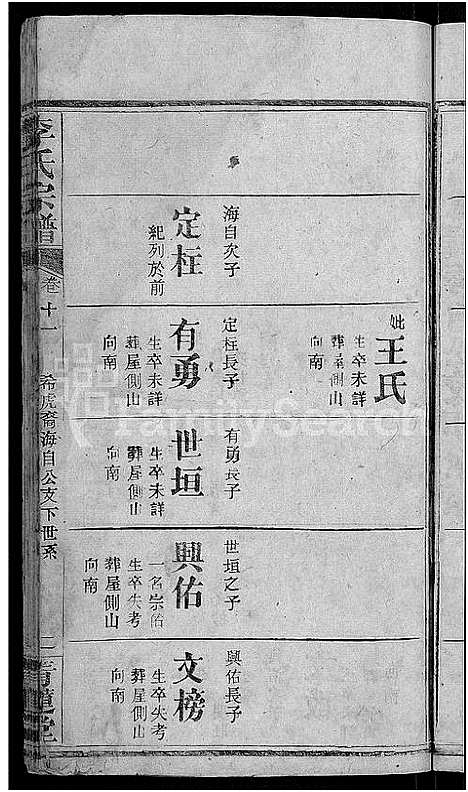 海自次子
定柱
紀列於前
定柱長子
有勇
生卒未詳
葬屋側山
向南
妣王氏
生卒未詳
葬屋側山
向南
有勇長子
世垣
生卒未詳
葬屋側山
向南
世垣之子
興佑
一名宗佑
生卒失考
葬屋側山
向南
興佑長子
文榜
生卒失考
葬屋側山
向南
李氏宗譜
卷十一
希虎裔海自公支下世系
FamilySearch